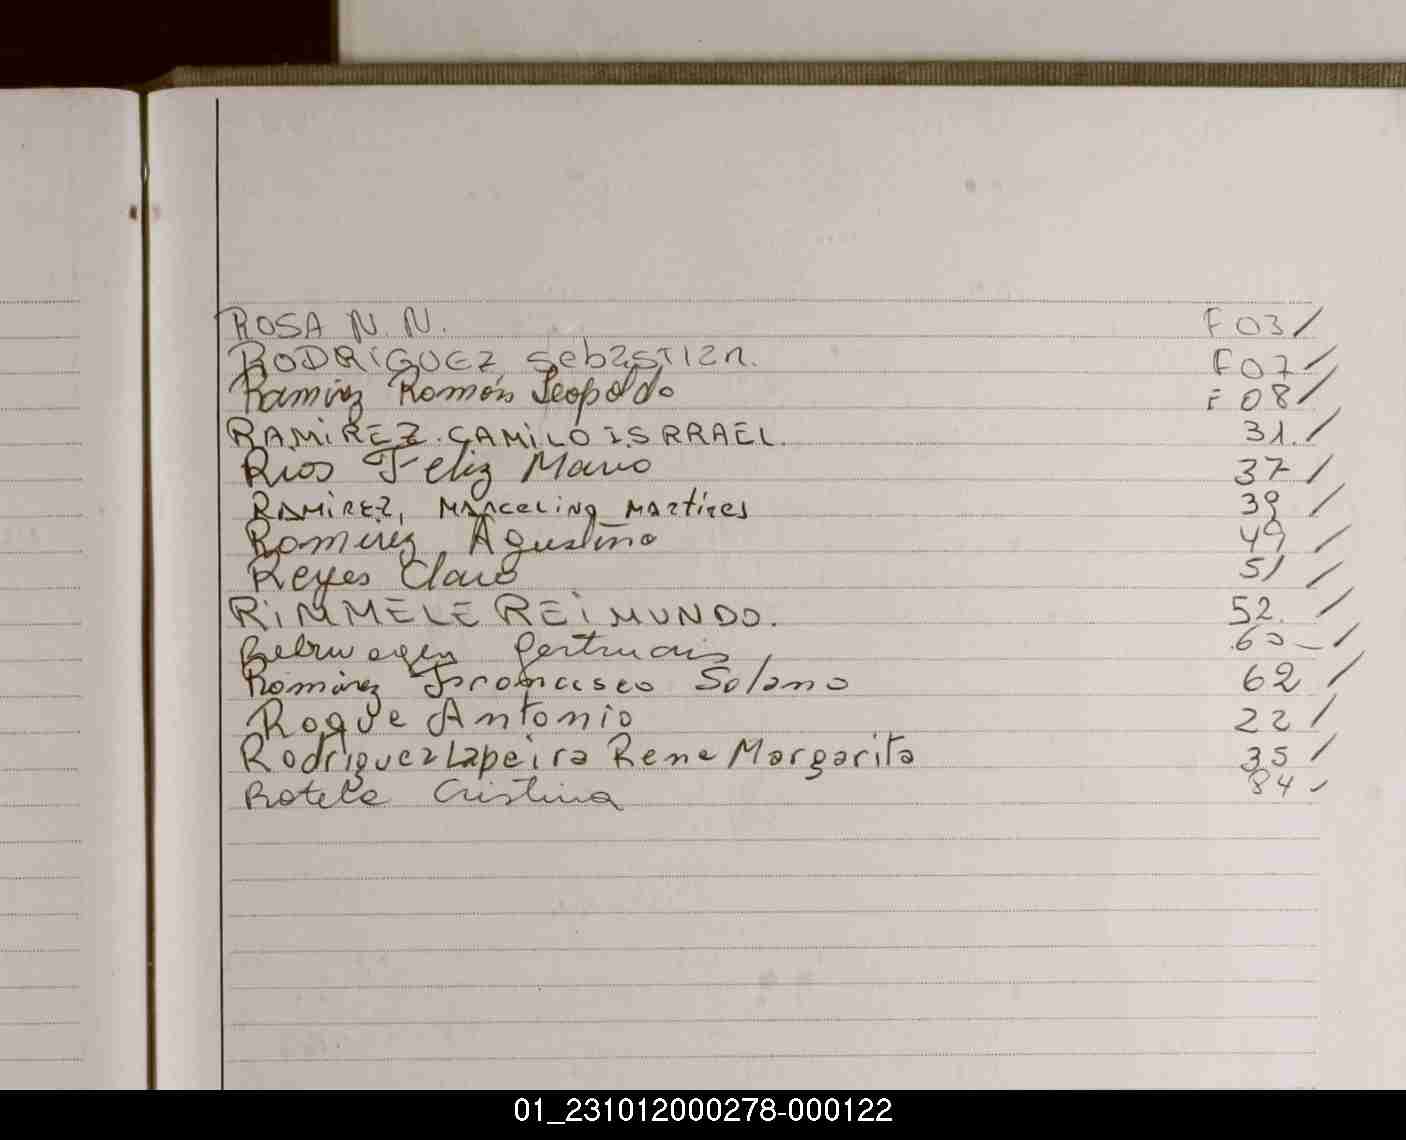 ROSA N. N. F 03 /
RODRIGUEZ, Sebastian. F 07 /
Ramirez Ramón Leopoldo F 08 /
RAMIREZ. CAMILO ISRRAEL. 31. /
Rios Feliz Mario 37 /
RAMIREZ, MARCELINO MARTIRES 39 /
Ramirez Agustino 49 /
Reyes Claro 51 /
RIMMELE REIMUNDO. 52. /
60 /
Ramirez Francisco Solano 62 /
Roque Antonio 22 /
Rodriguez Lapeira Rene Margarita 35 /
Rotela Cristina 84 /
01_231012000278-000122